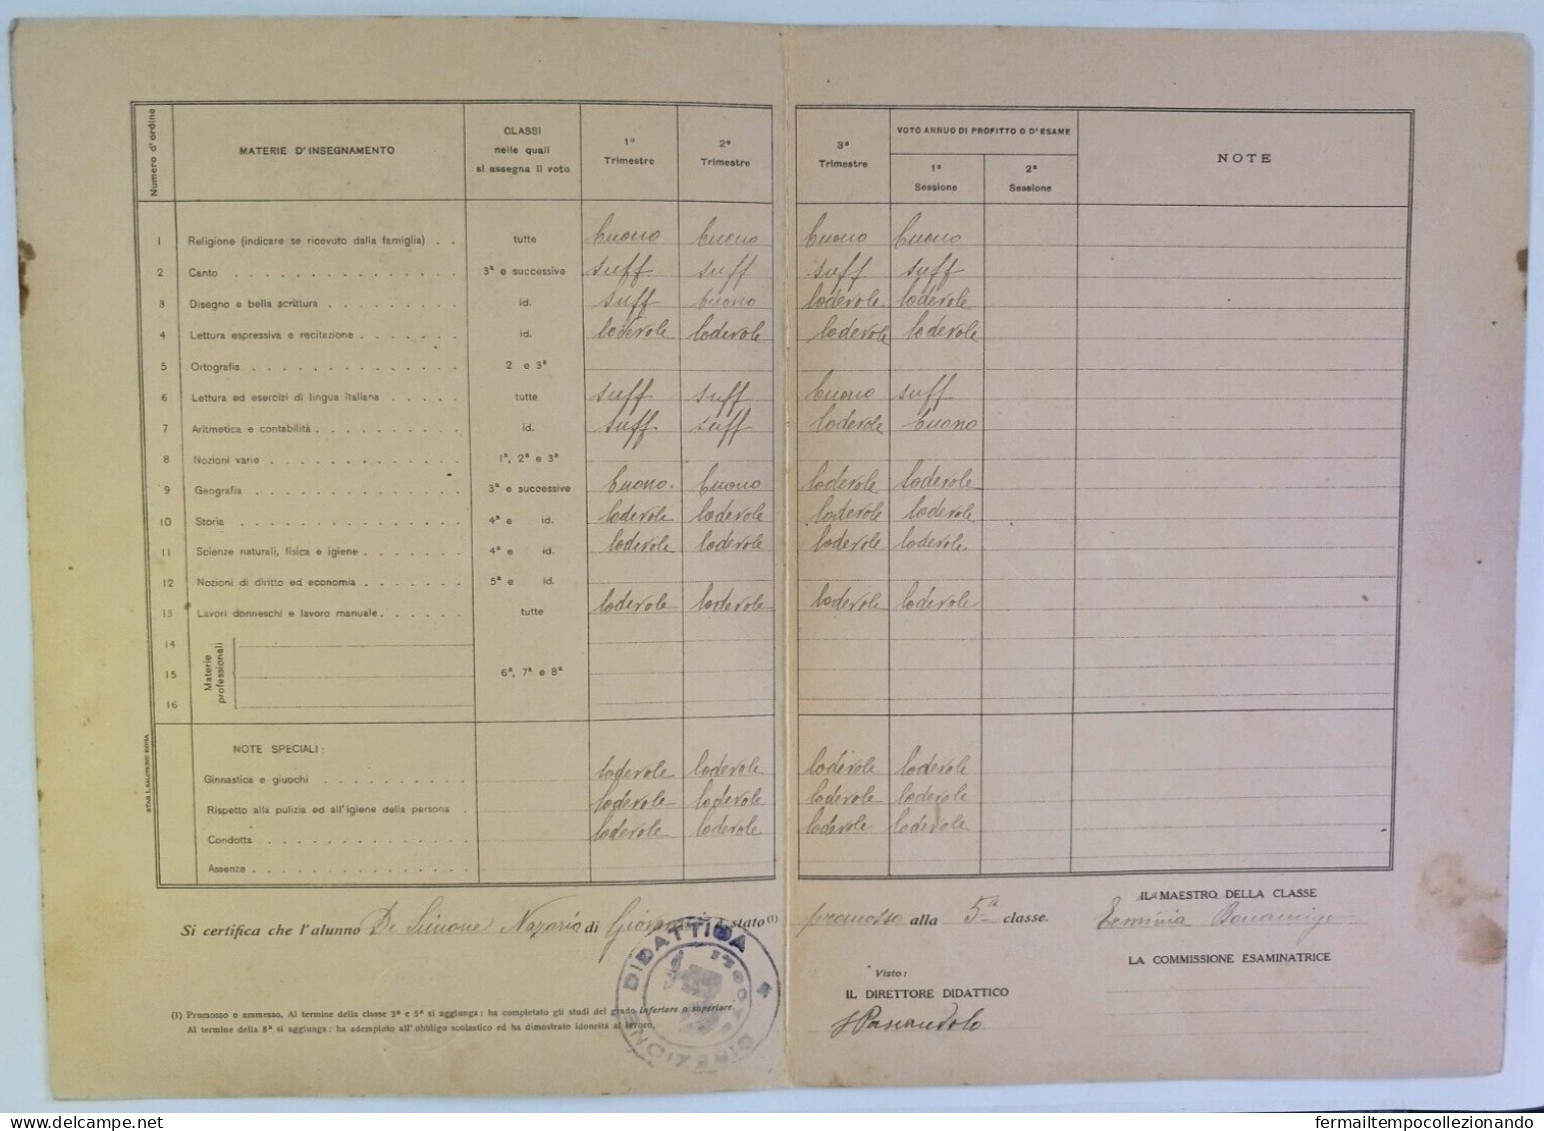 Numero d'ordine | MATERIE D'INSEGNAMENTO | CLASSI nelle quali si assegna il voto | 1º Trimestre | 2º Trimestre | 3º Trimestre | VOTO ANNUO DI PROFITTO O D'ESAME | 1ª Sessione | 2ª Sessione | NOTE
1 Religione (indicare se ricevuto dalla famiglia) . . tutte buono buono buono buono
2 Canto 3ª e successive suff suff suff suff
3 Disegno e bella scrittura id. suff buono lodevole lodevole
4 Lettura espressiva e recitazione id. lodevole lodevole lodevole lodevole
5 Ortografia 2 e 3ª
6 Lettura ed esercizi di lingua italiana tutte suff suff buono suff
7 Aritmetica e contabilità id. suff suff lodevole buono
8 Nozioni varie 1ª, 2ª e 3ª
9 Geografia 3ª e successive buono buono lodevole lodevole
10 Storia 4ª e id. lodevole lodevole lodevole lodevole
11 Scienze naturali, fisica e igiene 4ª e id. lodevole lodevole lodevole lodevole
12 Nozioni di diritto ed economia 5ª e id.
13 Lavori donneschi e lavoro manuale tutte lodevole lodevole lodevole lodevole
14
15 Materie professionali 6ª, 7ª e 8ª
16
NOTE SPECIALI:
Ginnastica e giuochi lodevole lodevole lodevole lodevole
Rispetto alla pulizia ed all'igiene della persona . lodevole lodevole lodevole lodevole
Condotta lodevole lodevole lodevole lodevole
Assenze
Si certifica che l'alunno De Simone Nazario di è stato (1) promosso alla 5ª classe.
IL MAESTRO DELLA CLASSE
Erminia Bonamigo
LA COMMISSIONE ESAMINATRICE
Visto:
IL DIRETTORE DIDATTICO
(1) Promosso o ammesso. Al termine della classe 3ª e 5ª si aggiunga: ha completato gli studi del grado inferiore o superiore.
Al termine della 8ª si aggiunga: ha adempiuto all'obbligo scolastico ed ha dimostrato idoneità al lavoro.
DIREZIONE DIDATTICA
fermailtempocollezionando